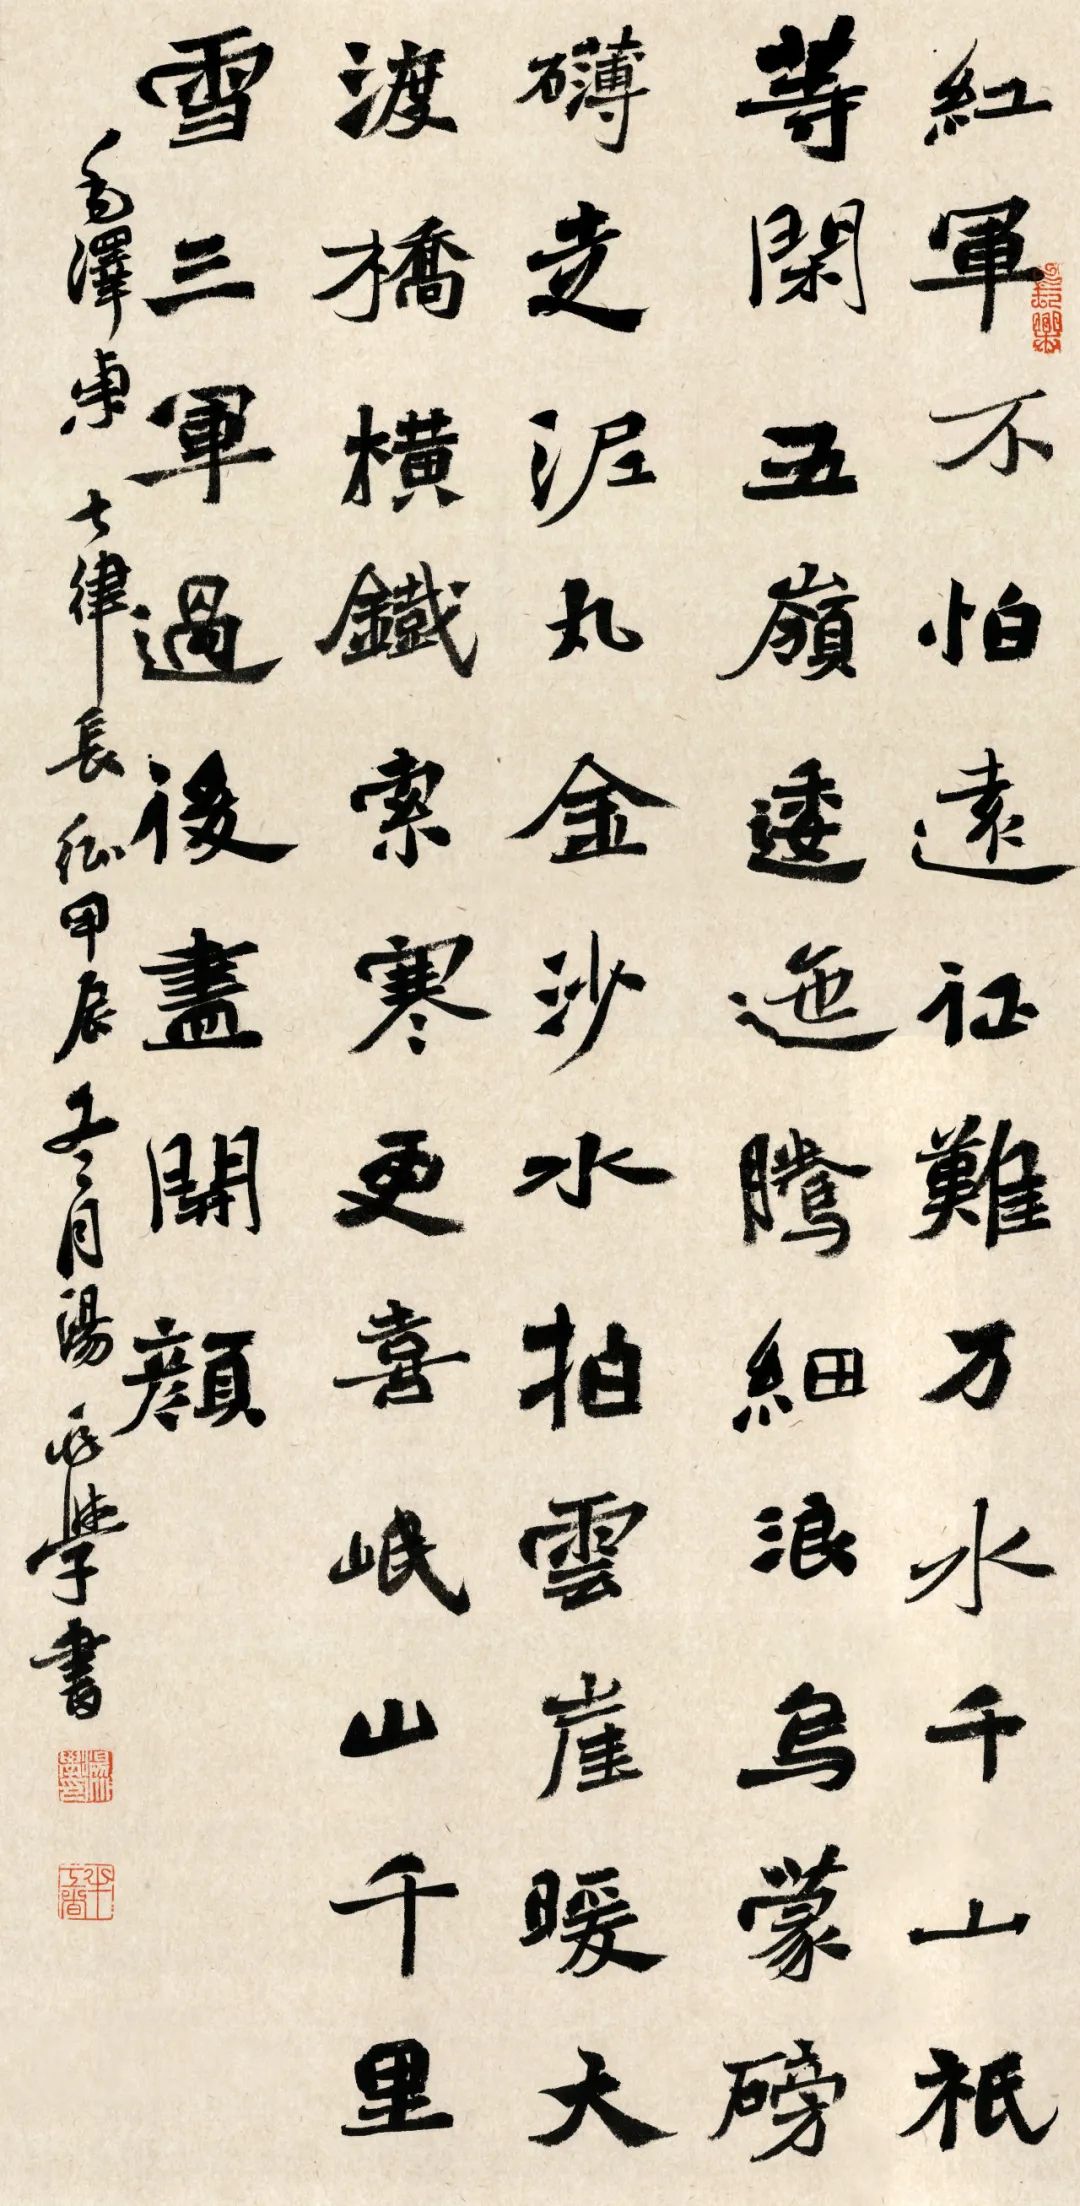 紅軍不怕遠征難万水千山祇
等閑五嶺逶迤騰細浪烏蒙磅
礴走泥丸金沙水拍雲崖暖大
渡橋横鐵索寒更喜岷山千里
雪三軍過後盡開顏
毛澤東七律長征甲辰冬月湯學書